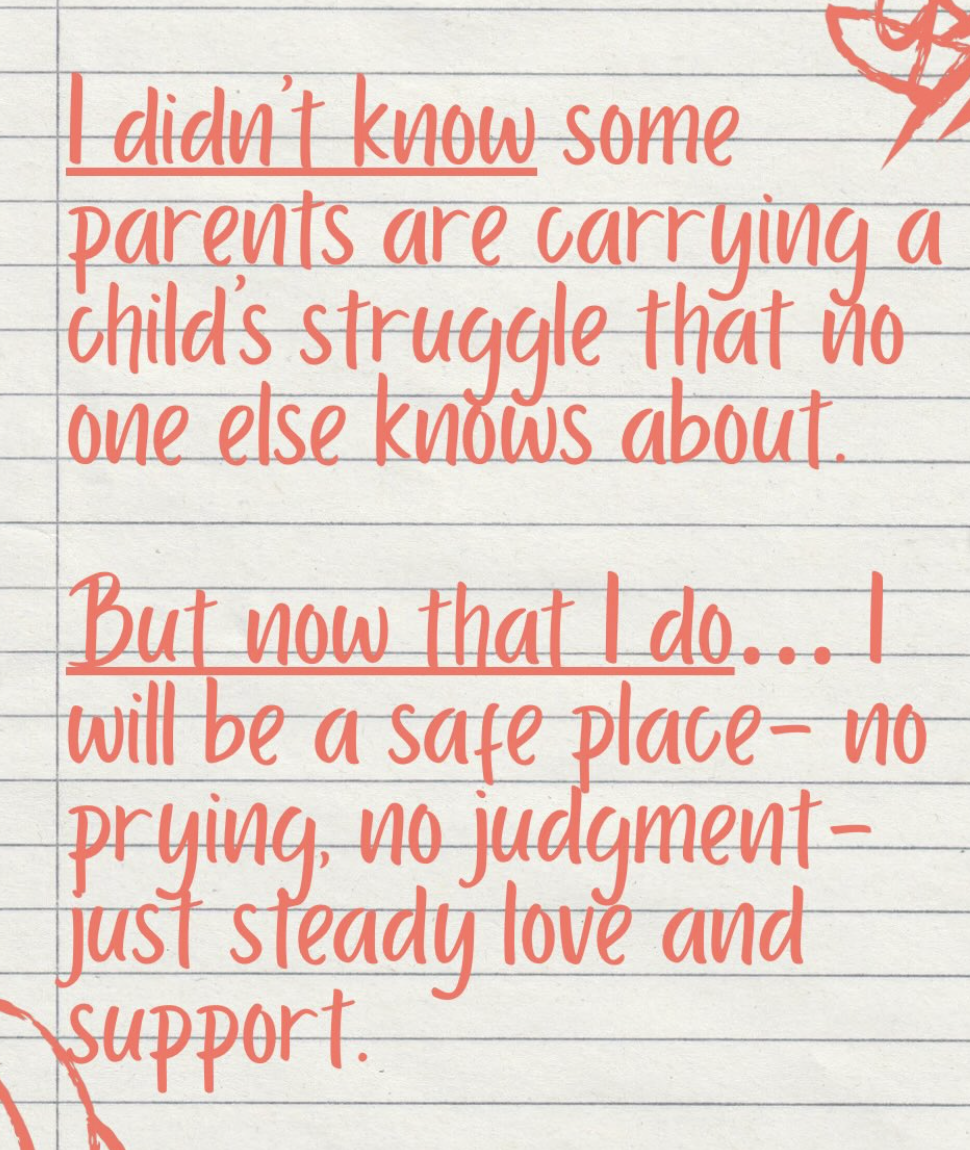 I didn't know some
parents are carrying a
child's struggle that no
one else knows about.
But now that I do... I
will be a safe place- no
prying, no judgment-
just steady love and
support.